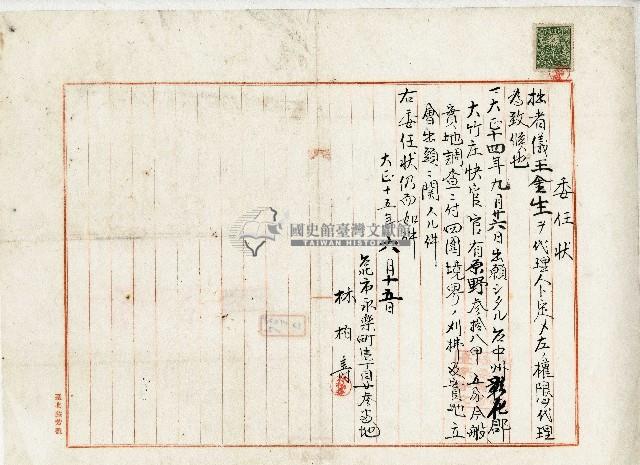 委任状
拙者儀王金生ヲ代理人ト定メ左ノ權限ヲ代理
為致候也
一大正十四年九月廿六日出願シタル台中州彰化郡
大竹庄快官官有原野參拾八甲五分
實地調查ニ付四圍境界ノ刈拂及實地立
會出願ニ関スル件
右委任状仍而如件
大正十五年六月十五日
台北市永樂町
林柏壽
國史館臺灣文獻館
TAIWAN HISTORICA